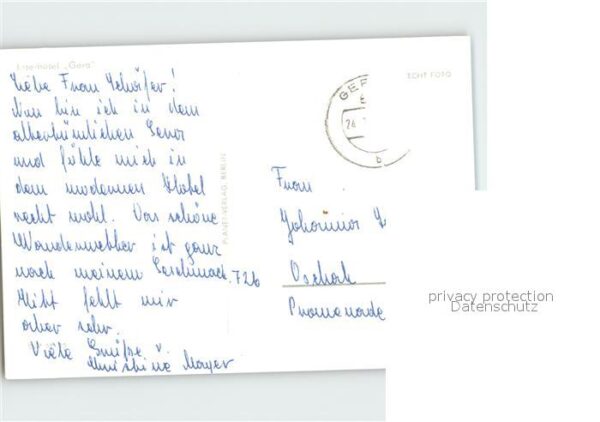 Interhotel „Gera"
Liebe Frau Schäfer!
Nun bin ich in dem
altertümlichen Gera
und fühle mich in
dem modernen Hotel
recht wohl. Das schöne
Wanderwetter ist ganz
nach meinem Geschmack.
fehlt mir
aber sehr.
Viele Grüße v.
Christine Mayer
PLANET-VERLAG, BERLIN
726
ECHT FOTO
GER
24
b
Frau
Johanna
Oschatz
Promenade
privacy protection
Datenschutz